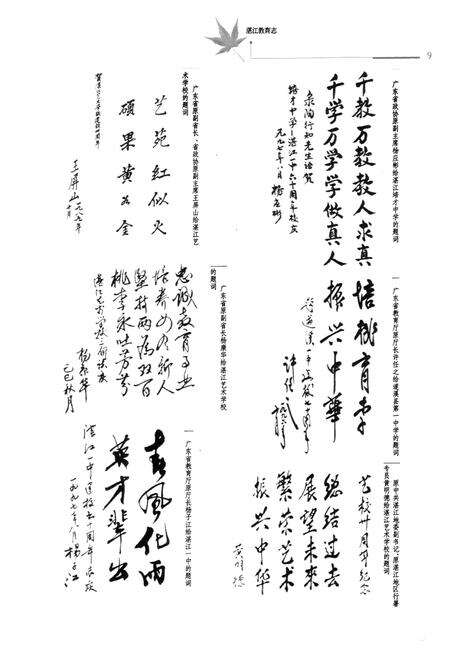 湛江教育志
9
广东省政协原副主席杨应彬给湛江培才中学的题词
千教万教教人求真
千学万学学做真人
录陶行知先生语贺
培才中学—湛江一中六十周年校友
一九九七年八月 杨应彬
广东省原副省长、省政协原副主席王屏山给湛江艺
术学校的题词
艺苑红似火
硕果黄如金
王屏山
一九八七年
十月
广东省教育厅原厅长许任之给遂溪县第一中学的题词
培桃育李
振兴中华
许任之
广东省原副省长杨康华给湛江艺术学校
的题词
忠诚教育事业
培养四有新人
坚持两为双百
桃李永吐芳芬
杨康华
己巳秋月
原中共湛江地委副书记、原湛江地区行署
专员黄明德给湛江艺术学校的题词
艺校卅周年纪念
总结过去
展望未来
繁荣艺术
振兴中华
黄明德
广东省教育厅原厅长杨子江给湛江一中的题词
春风化雨
英才辈出
湛江一中建校六十周年志庆
一九九七年八月 杨子江